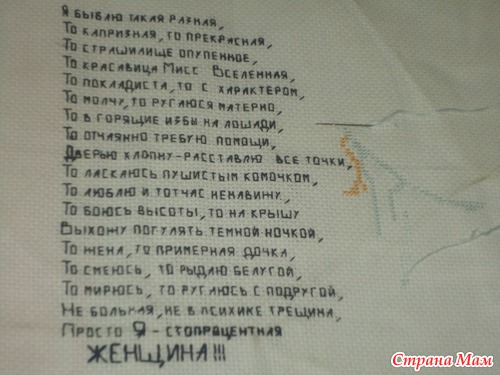 Я бываю такая разная,
То капризная, то прекрасная,
То страшилище опупенное,
То красавица Мисс Вселенная,
То покладиста, то с характером,
То молчу, то ругаюся матерно,
То в горящие избы на лошади,
То отчаянно требую помощи,
Дверью хлопну-расставлю все точки,
То ласкаюсь пушистым комочком,
То люблю и тотчас ненавижу,
То боюсь высоты, то на крышу
Выхожу погулять темной ночкой,
То жена, то примерная дочка,
То смеюсь, то рыдаю белугой,
То мирюсь, то ругаюсь с подругой,
Не больная, не в психике трещина,
Просто Я - стопрацентная
ЖЕНЩИНА!!!
Страна Мам